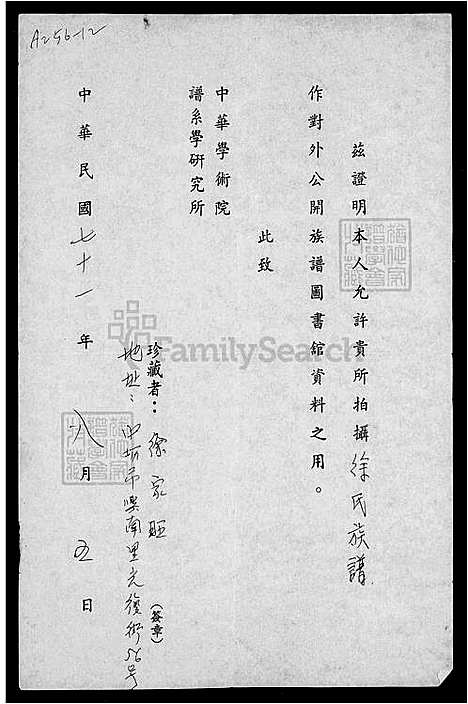 A256-12
茲證明本人允許貴所拍攝徐氏族譜
作對外公開族譜圖書館資料之用。
此致
中華學術院
譜系學研究所
珍藏者：徐家旺
(簽章)
地址：中坜市興南里光復街56号
中華民國七十一年八月五日
FamilySearch